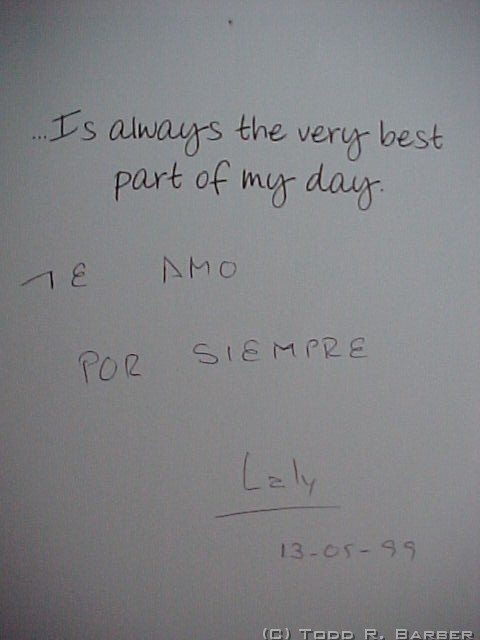 ...Is always the very best
part of my day.
TE AMO
POR SIEMPRE
Laly
13-05-99
(C) Todd R. Barber